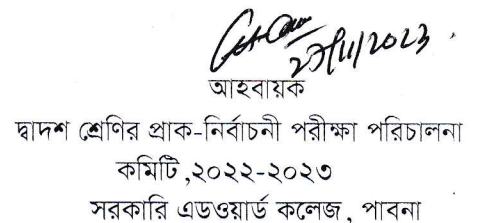 27/11/2023
আহবায়ক
দ্বাদশ শ্রেণির প্রাক-নির্বাচনী পরীক্ষা পরিচালনা
কমিটি,২০২২-২০২৩
সরকারি এডওয়ার্ড কলেজ, পাবনা